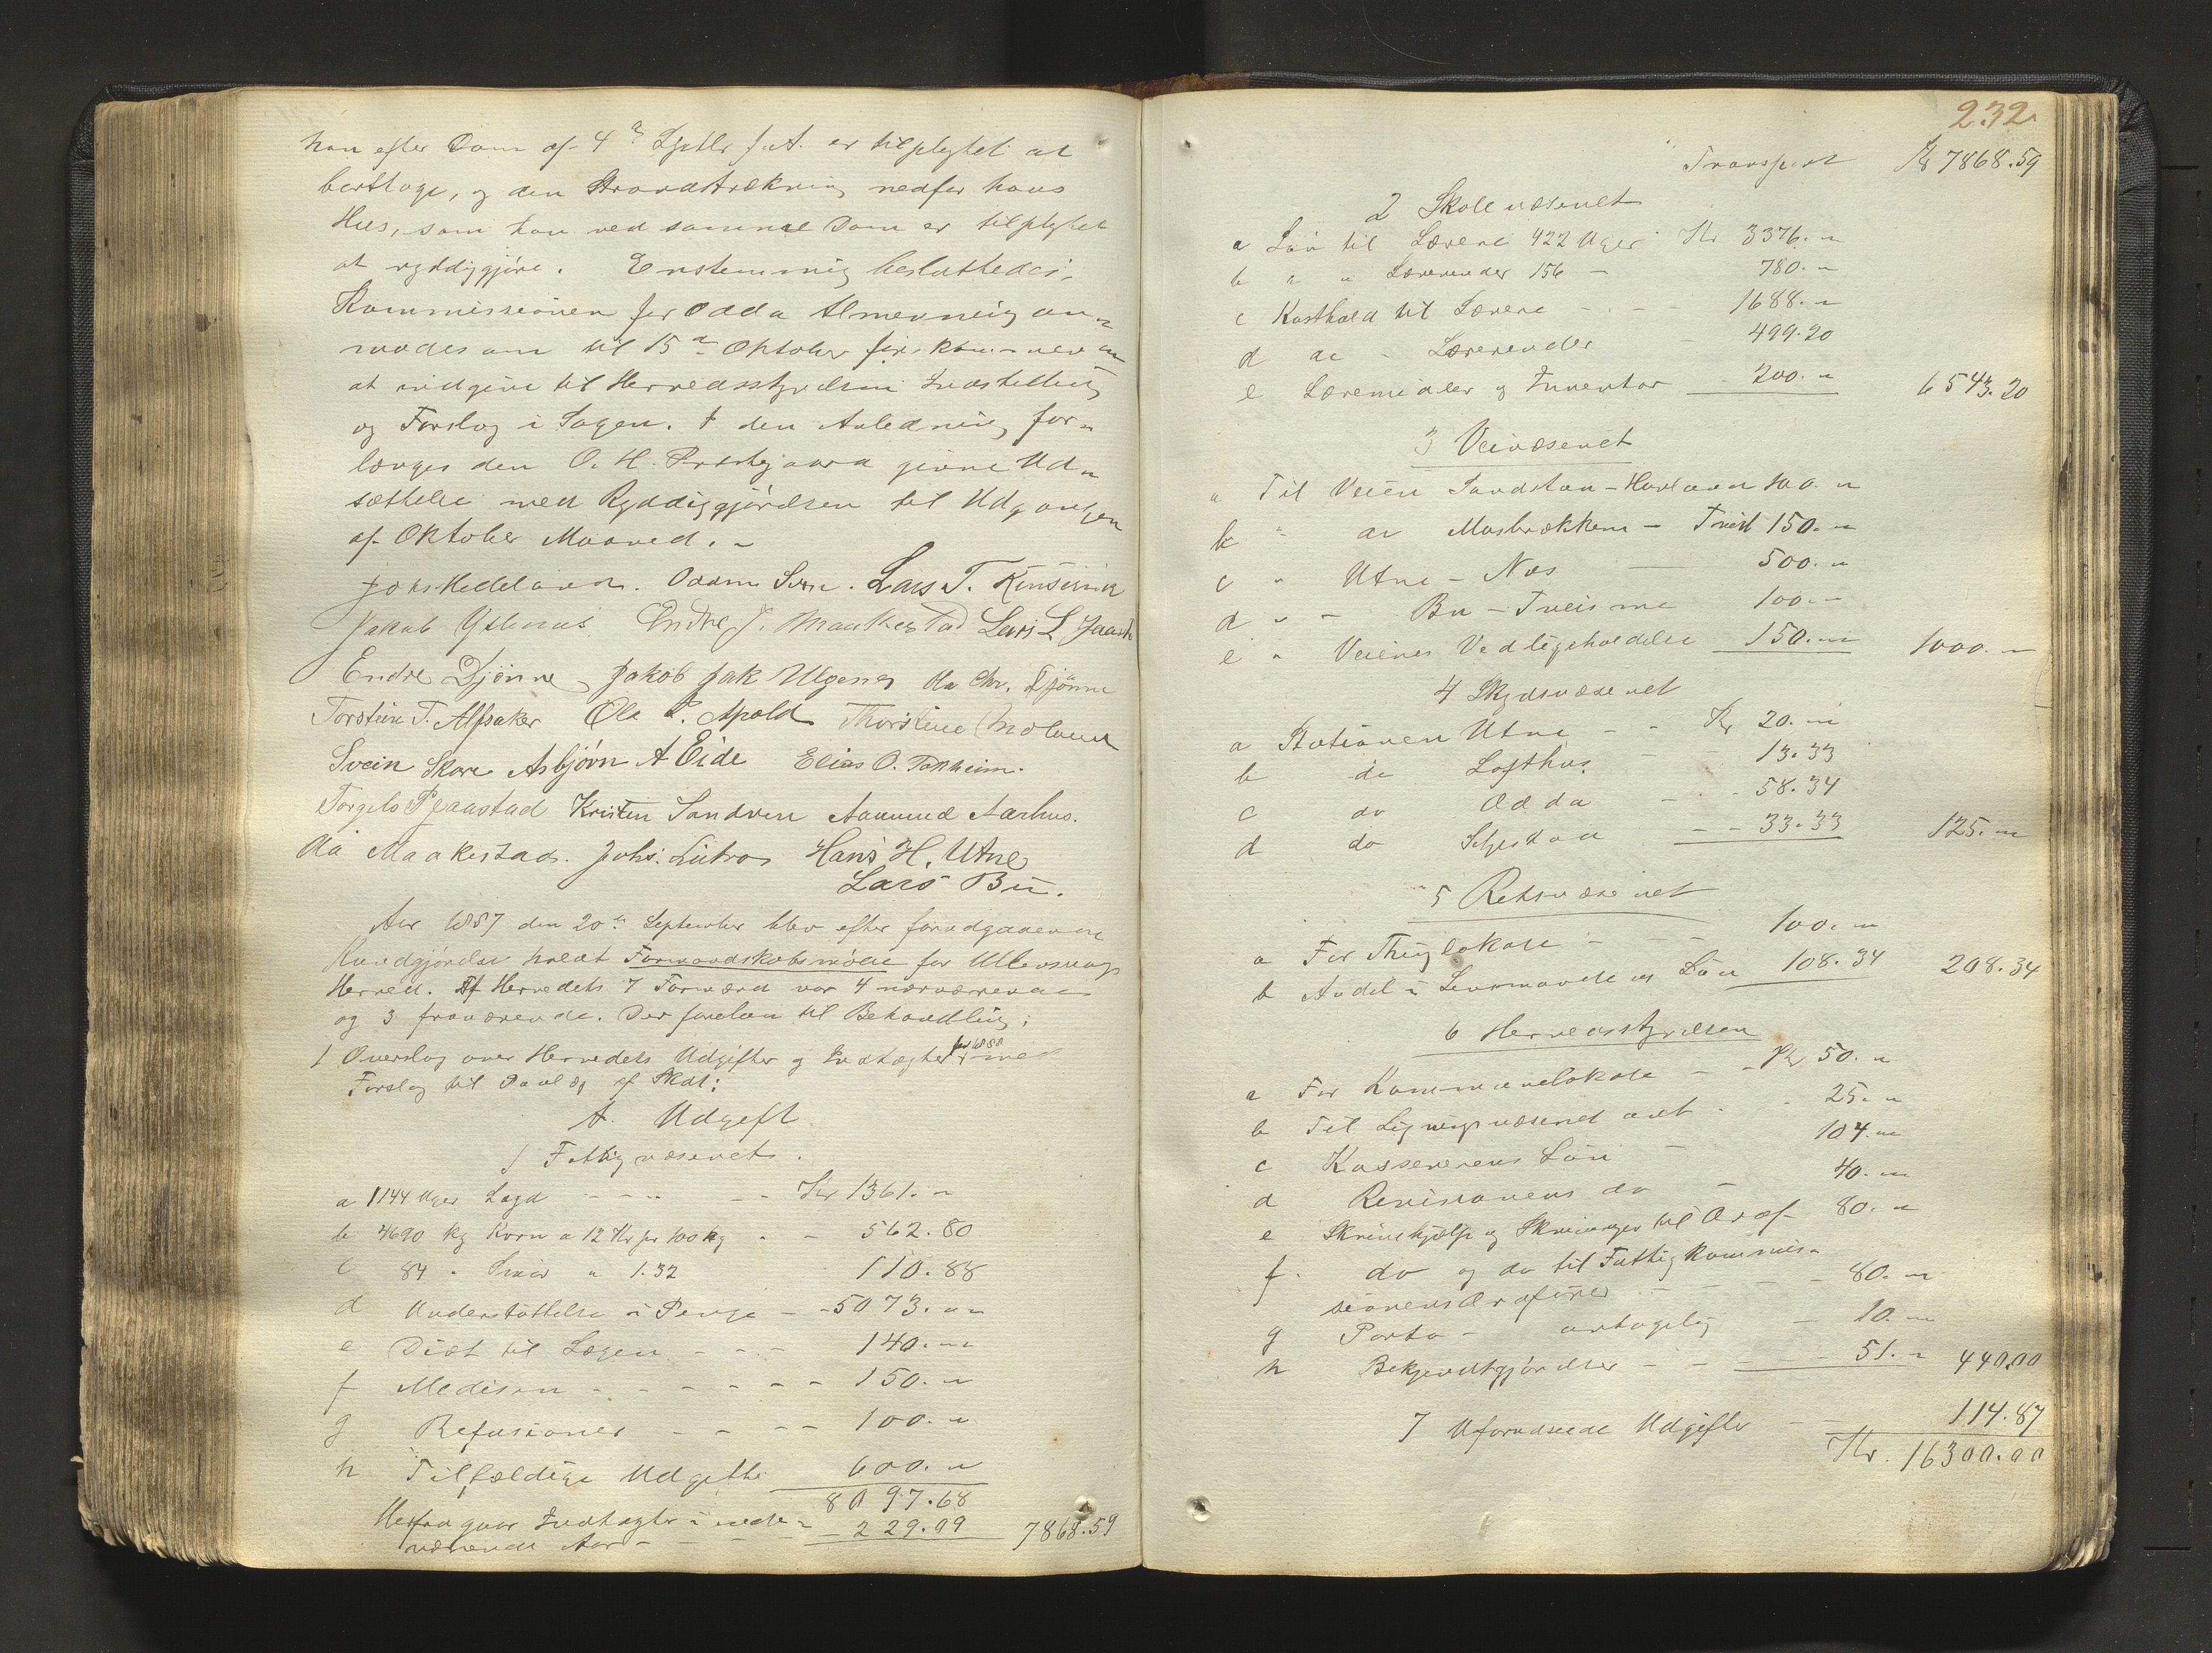 han efter Dom af 4de Septbr f. A. er tilpligtet at
borttage, og den Strandstrækning nedfor hans
Hus, som han ved samme Dom er tilpligtet
at ryddiggjøre. Enstemmig besluttedes:
Kommissionen for Odda Almenning an-
modes om til 15de Oktober førstkommende
at indgive til Herredsstyrelsen Indstilling
og Forslag i Sagen. I den Anledning for-
længes den O. H. Prestegaard givne Ud-
sættelse med Ryddiggjørelsen til Udgangen
af Oktober Maaned. -
Johs Helleland. Odden Lars T. Kinservik
Jakob Ystenæs Endre J. Maakestad Lars L
Endre Djønne Jakob Jak Ulgenes Ola Chr. Djønne
Torstein T. Alsaker Ola L. Apold Thorstein
Svein Skare Asbjørn A Eide Elias O. Tokheim.
Torgils Kristen Sandven Aamund Aarhus.
Ola Maakestad. Johs. Lutro Hans H. Utne
Lars Bu.
Aar 1887 den 20de September blev efter forudgaaende
Kundgjørelse holdt Formandskabsmøde for Ullensvangs
Herred. Af Herredets 7 Formænd var 4 nærværende
og 3 fraværende. Der forelaa til Behandling:
1 Overslag over Herredets Udgifter og Indtægter for 1888 med
Forslag til Paalæg af Skat:
A. Udgift
1 Fattigvæsenet.
a 1144 Uger Lægd - - - Kr 1361. "
b 4690 kg Korn a 12 Kr pr 100 kg - - 562.80
c 84 " Smør a 1.32 110.88
d Understøttelse i Penge - - 5073. "
e Diæt til Lægen - - - 140. "
f Medisin - - - - - - 150. "
g Refusioner - - - - 100. "
h Tilfældige Udgifter 600. "
8097.68
Herfra gaar Indtægter i inde-
værende Aar - - - 229.09 7868.59
232
Transport Kr 7868.59
2 Skolevæsenet
a Løn til Lærere 422 Uger Kr 3376. "
b " " Lærerinder 156 - 780. "
c Kosthold til Lærere - - - 1688. "
d do - Lærerinder - 499.20
e Læremidler og Inventar - 200. " 6543.20
3 Veivæsenet
a Til Veien Sandstøn - 100. "
b " do - 150. "
c " Utne - Næs - 500. "
d " - Bu - Tveisme 100. "
e " Veienes Vedligeholdelse 150. " 1000. "
4 Skydsvæsenet
a Stationen Utne - - Kr 20. "
b do Lofthus - - 13.33
c do Odda - - 58.34
d do - - 33.33 125. "
5 Retsvæsenet
a For Thinglokale - - - 100. "
b Andel i Lensmandens Løn 108.34 208.34
6 Herredsstyrelsen
a For Kommunelokale - - Kr 50. "
b Til Ligningsvæsenet ant. - 25. "
c Kassererens Løn - 104. "
d Revisionens do - 40. "
e Skrivehjælp og Skrivesager til Ordf. 80. "
f. do og do til Fattigkommis-
sionens Ordfører - - - 80. "
g Porto - antagelig - 10. "
h Bekjendtgjørelser - - - 51. " 440.00
7 Uforudseede Udgifter - - 114.87
Kr. 16300.00